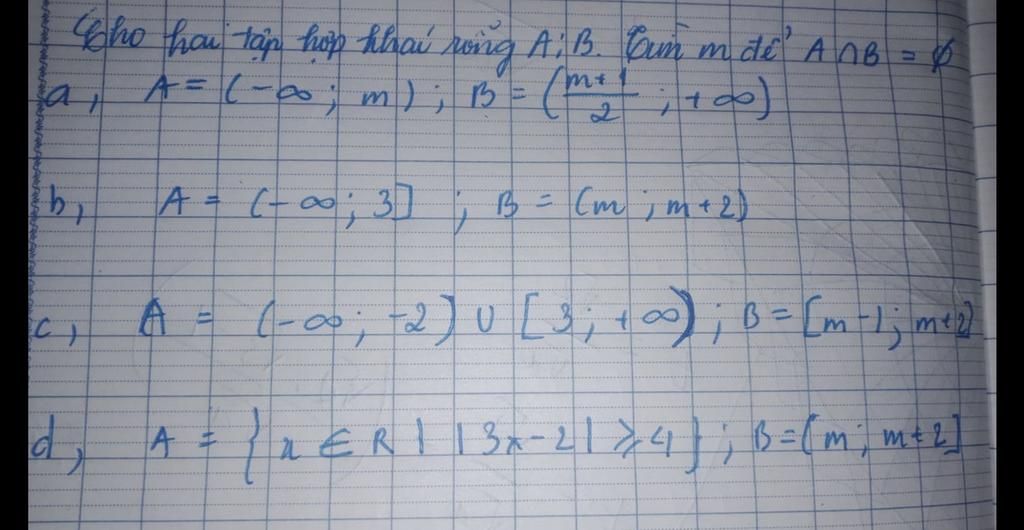 Cho hai tập hợp khác rỗng A; B. Tìm m để A ∩ B = ∅
a, A = (-∞; m); B = (\frac{m+1}{2}; +∞)
b, A = (-∞; 3]; B = (m; m+2)
c, A = (-∞; -2] ∪ [3; +∞); B = [m-1; m+2]
d, A = {x ∈ R | |3x-2| ≥ 4}; B = [m; m+2]